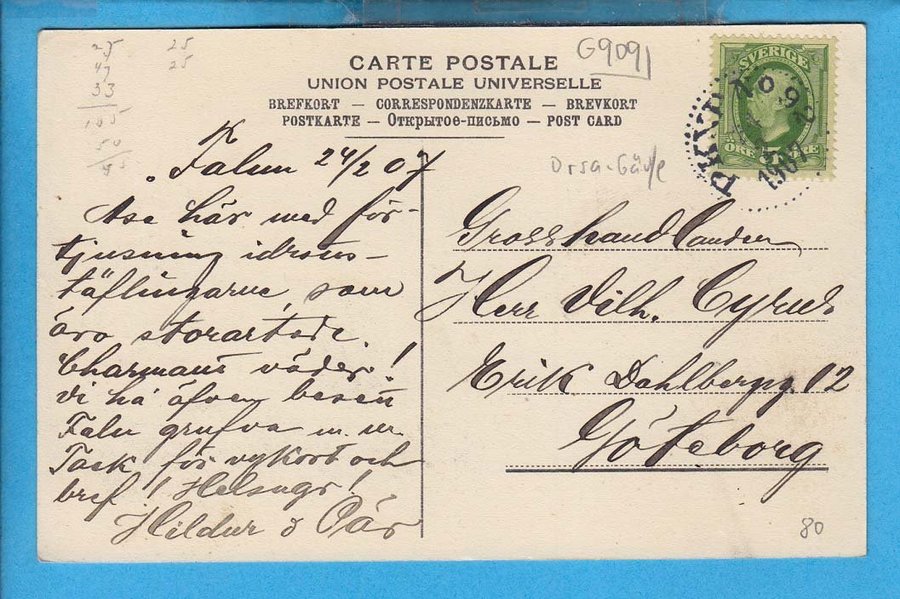 25
47
33
105
50
25
25
CARTE POSTALE
UNION POSTALE UNIVERSELLE
BREFKORT — CORRESPONDENZKARTE — BREVKORT
POSTKARTE — Открытое-письмо — POST CARD
G909
Orsa-Gävle
SVERIGE
ÖRE
PKXP No 9
1907
Falun 24/2 07
Åse här med för-
tjusning idrotts-
täflingarne, som
äro storartade.
Charmant väder!
Vi ha äfven besett
Falu grufva m. m.
Tack för vykort och
bref! Helsngr!
Hildur & Pär
Grosshandlanden
Herr Vilh. Cyrus
Erik Dahlbergsg. 12
Göteborg
80